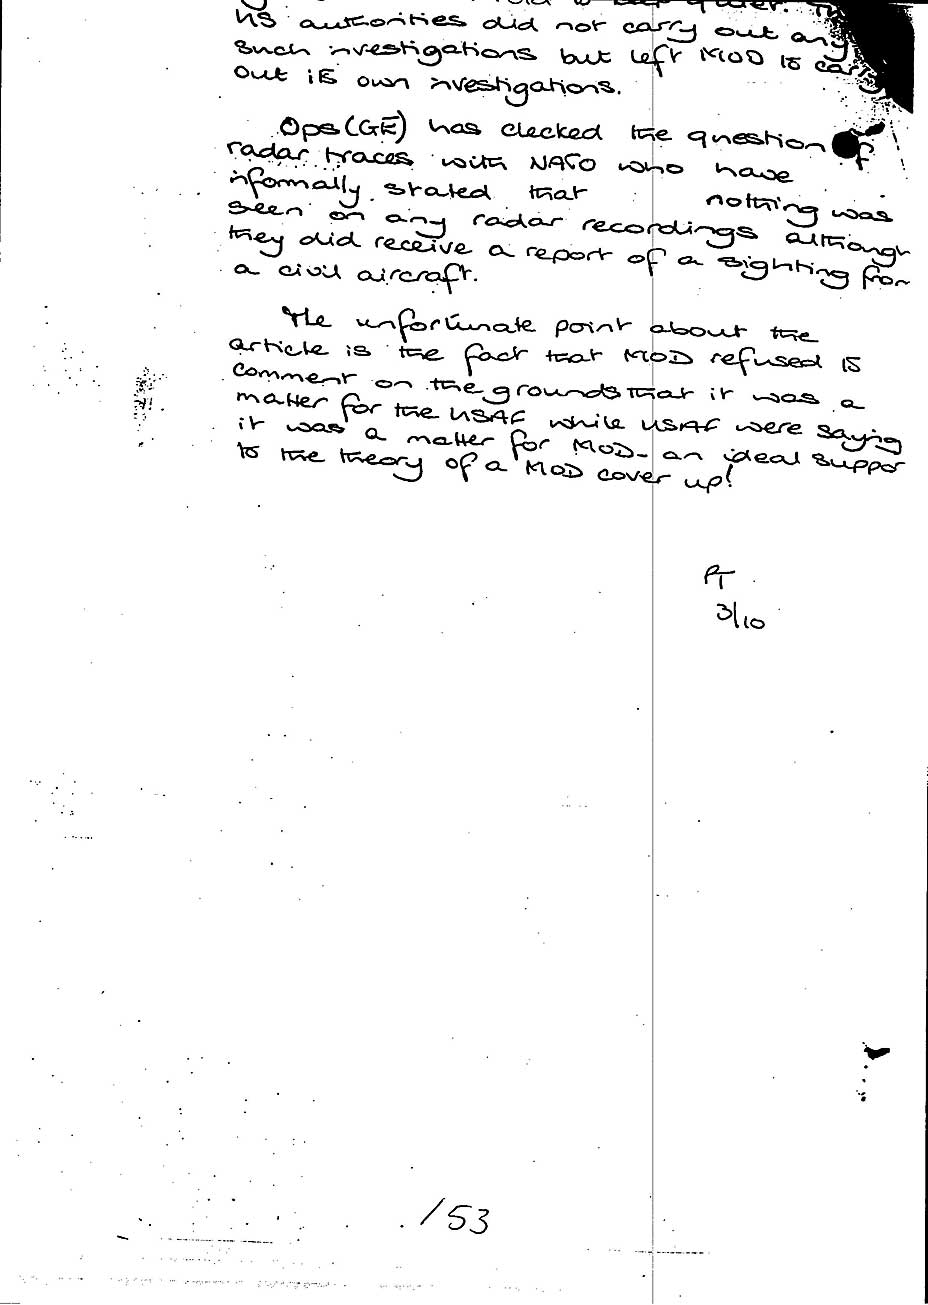 US authorities did not carry out any
such investigations but left MOD to carry
out its own investigations.
Ops(GE) has checked the question of
radar traces with NATO who have
informally stated that nothing was
seen on any radar recordings although
they did receive a report of a sighting from
a civil aircraft.
The unfortunate point about the
article is the fact that MOD refused to
comment on the grounds that it was a
matter for the USAF while USAF were saying
it was a matter for MOD - an ideal suppor
to the theory of a MOD cover up!
PT
3/10
/53